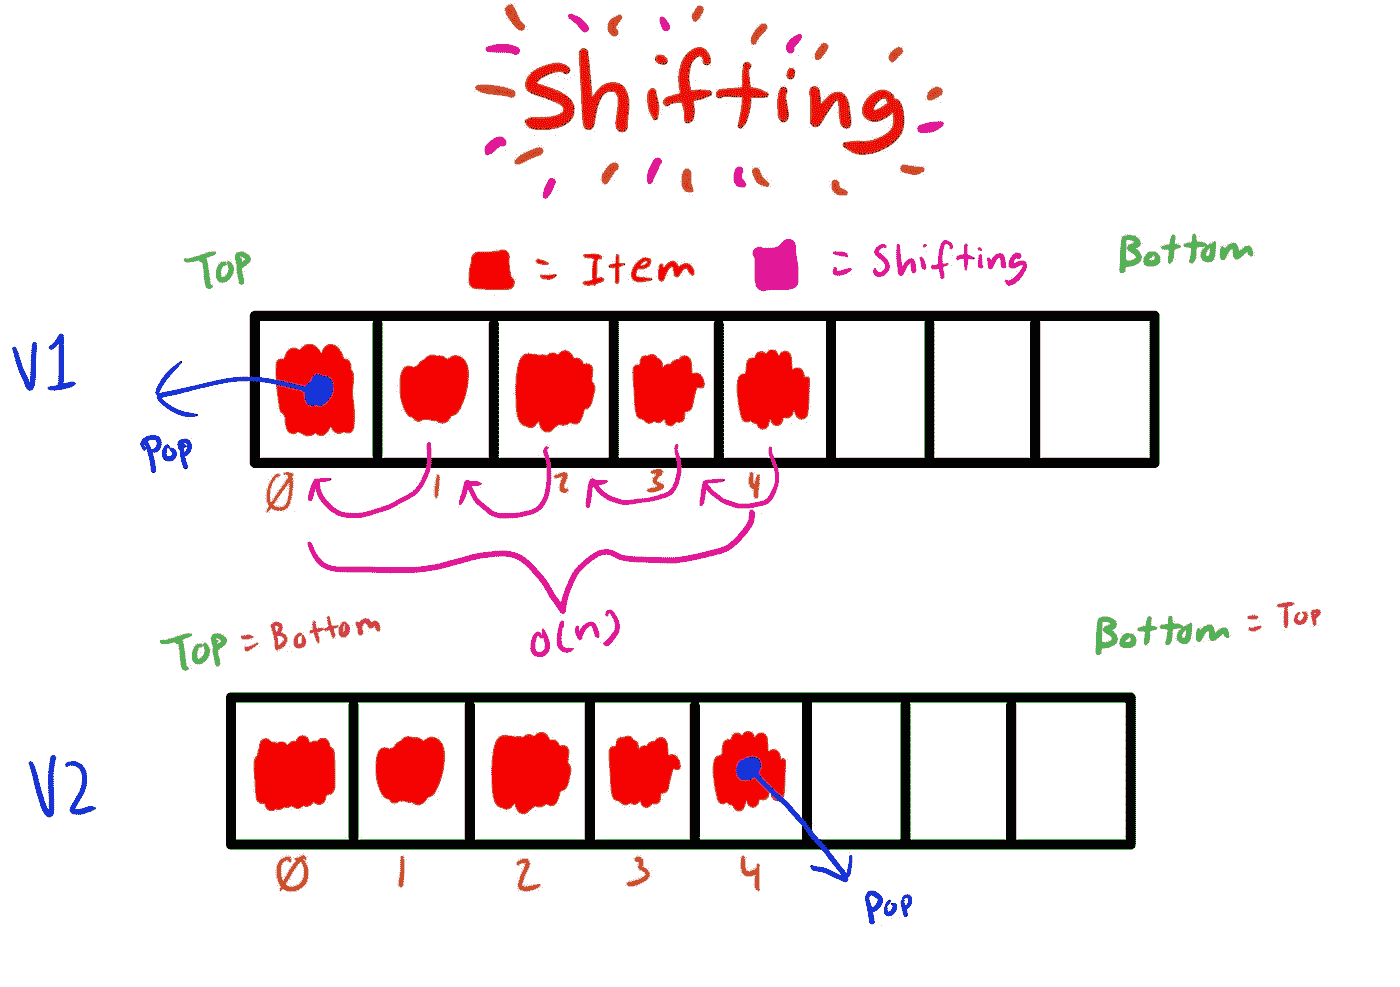 Shifting
Top
= Item
= Shifting
Bottom
V1
Pop
Ø 1 2 3 4
O(n)
Top = Bottom
Bottom = Top
V2
Ø 1 2 3 4
Pop